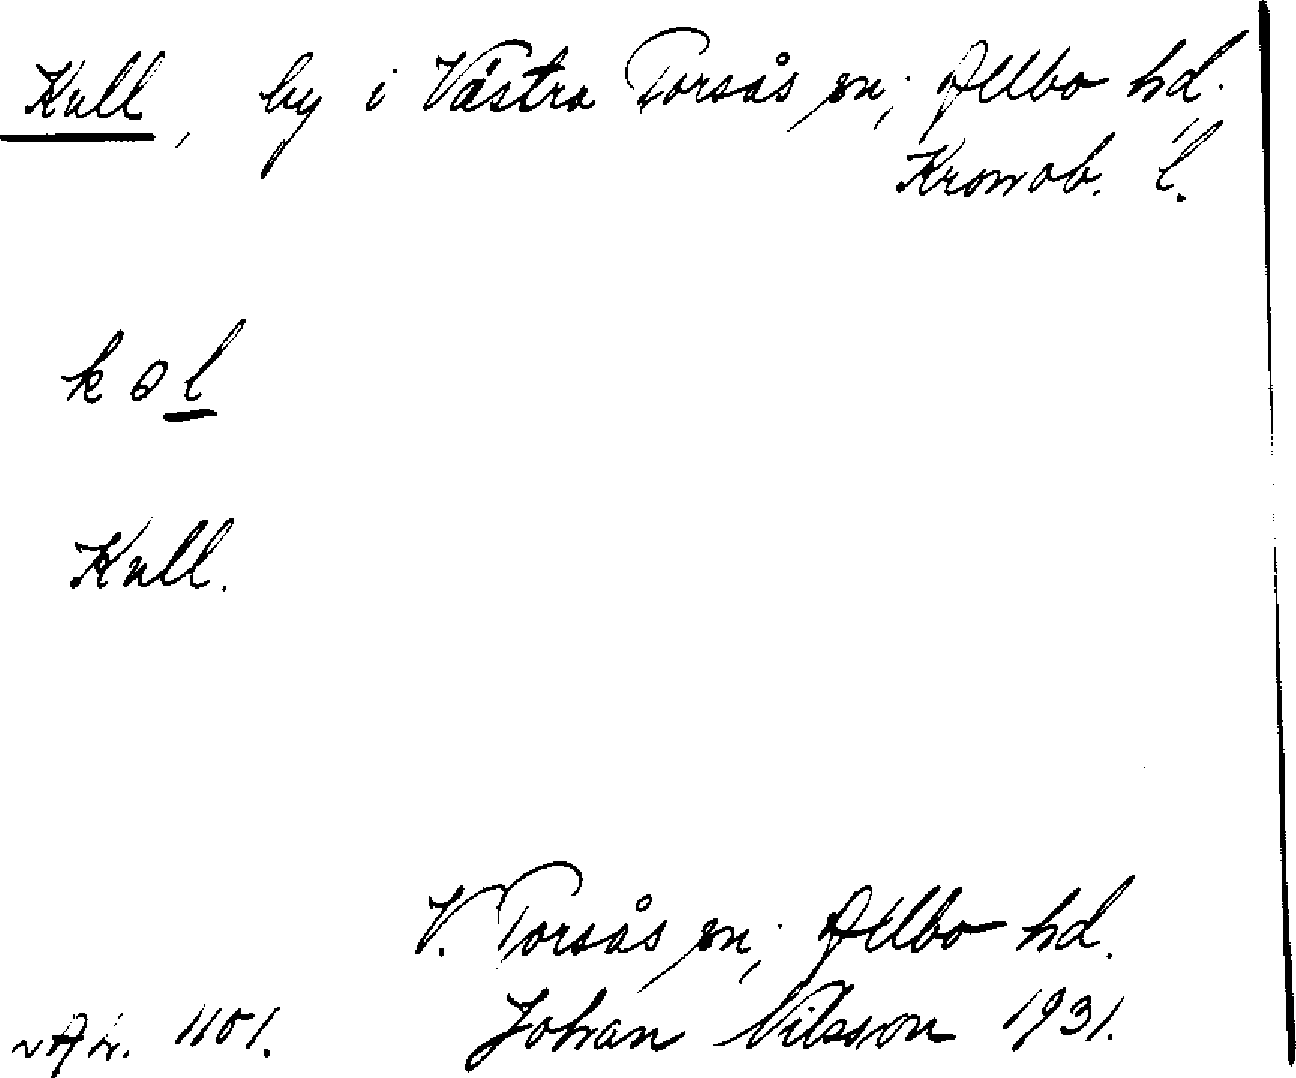 Kull, by i Västra Torsås sn; Allbo hd.
Kronob. l.
kol
Kull.
V. Torsås sn; Allbo hd.
Johan Nilsson 1931.
1101.